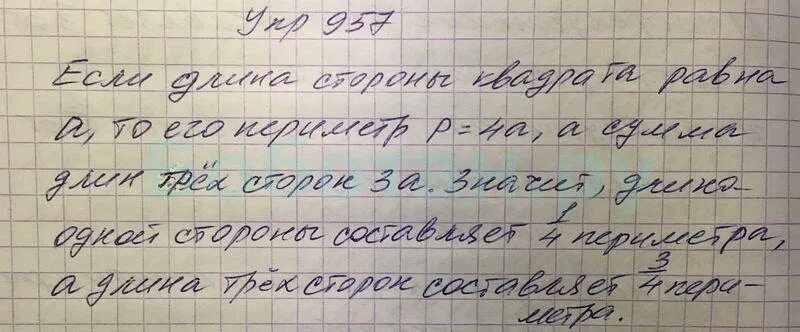 Упр 957
Если длина стороны квадрата равна
а, то его периметр P=4a, а сумма
длин трёх сторон 3а. Значит, длина
одной стороны составляет 1/4 периметра,
а длина трёх сторон составляет 3/4 пери-
метра.